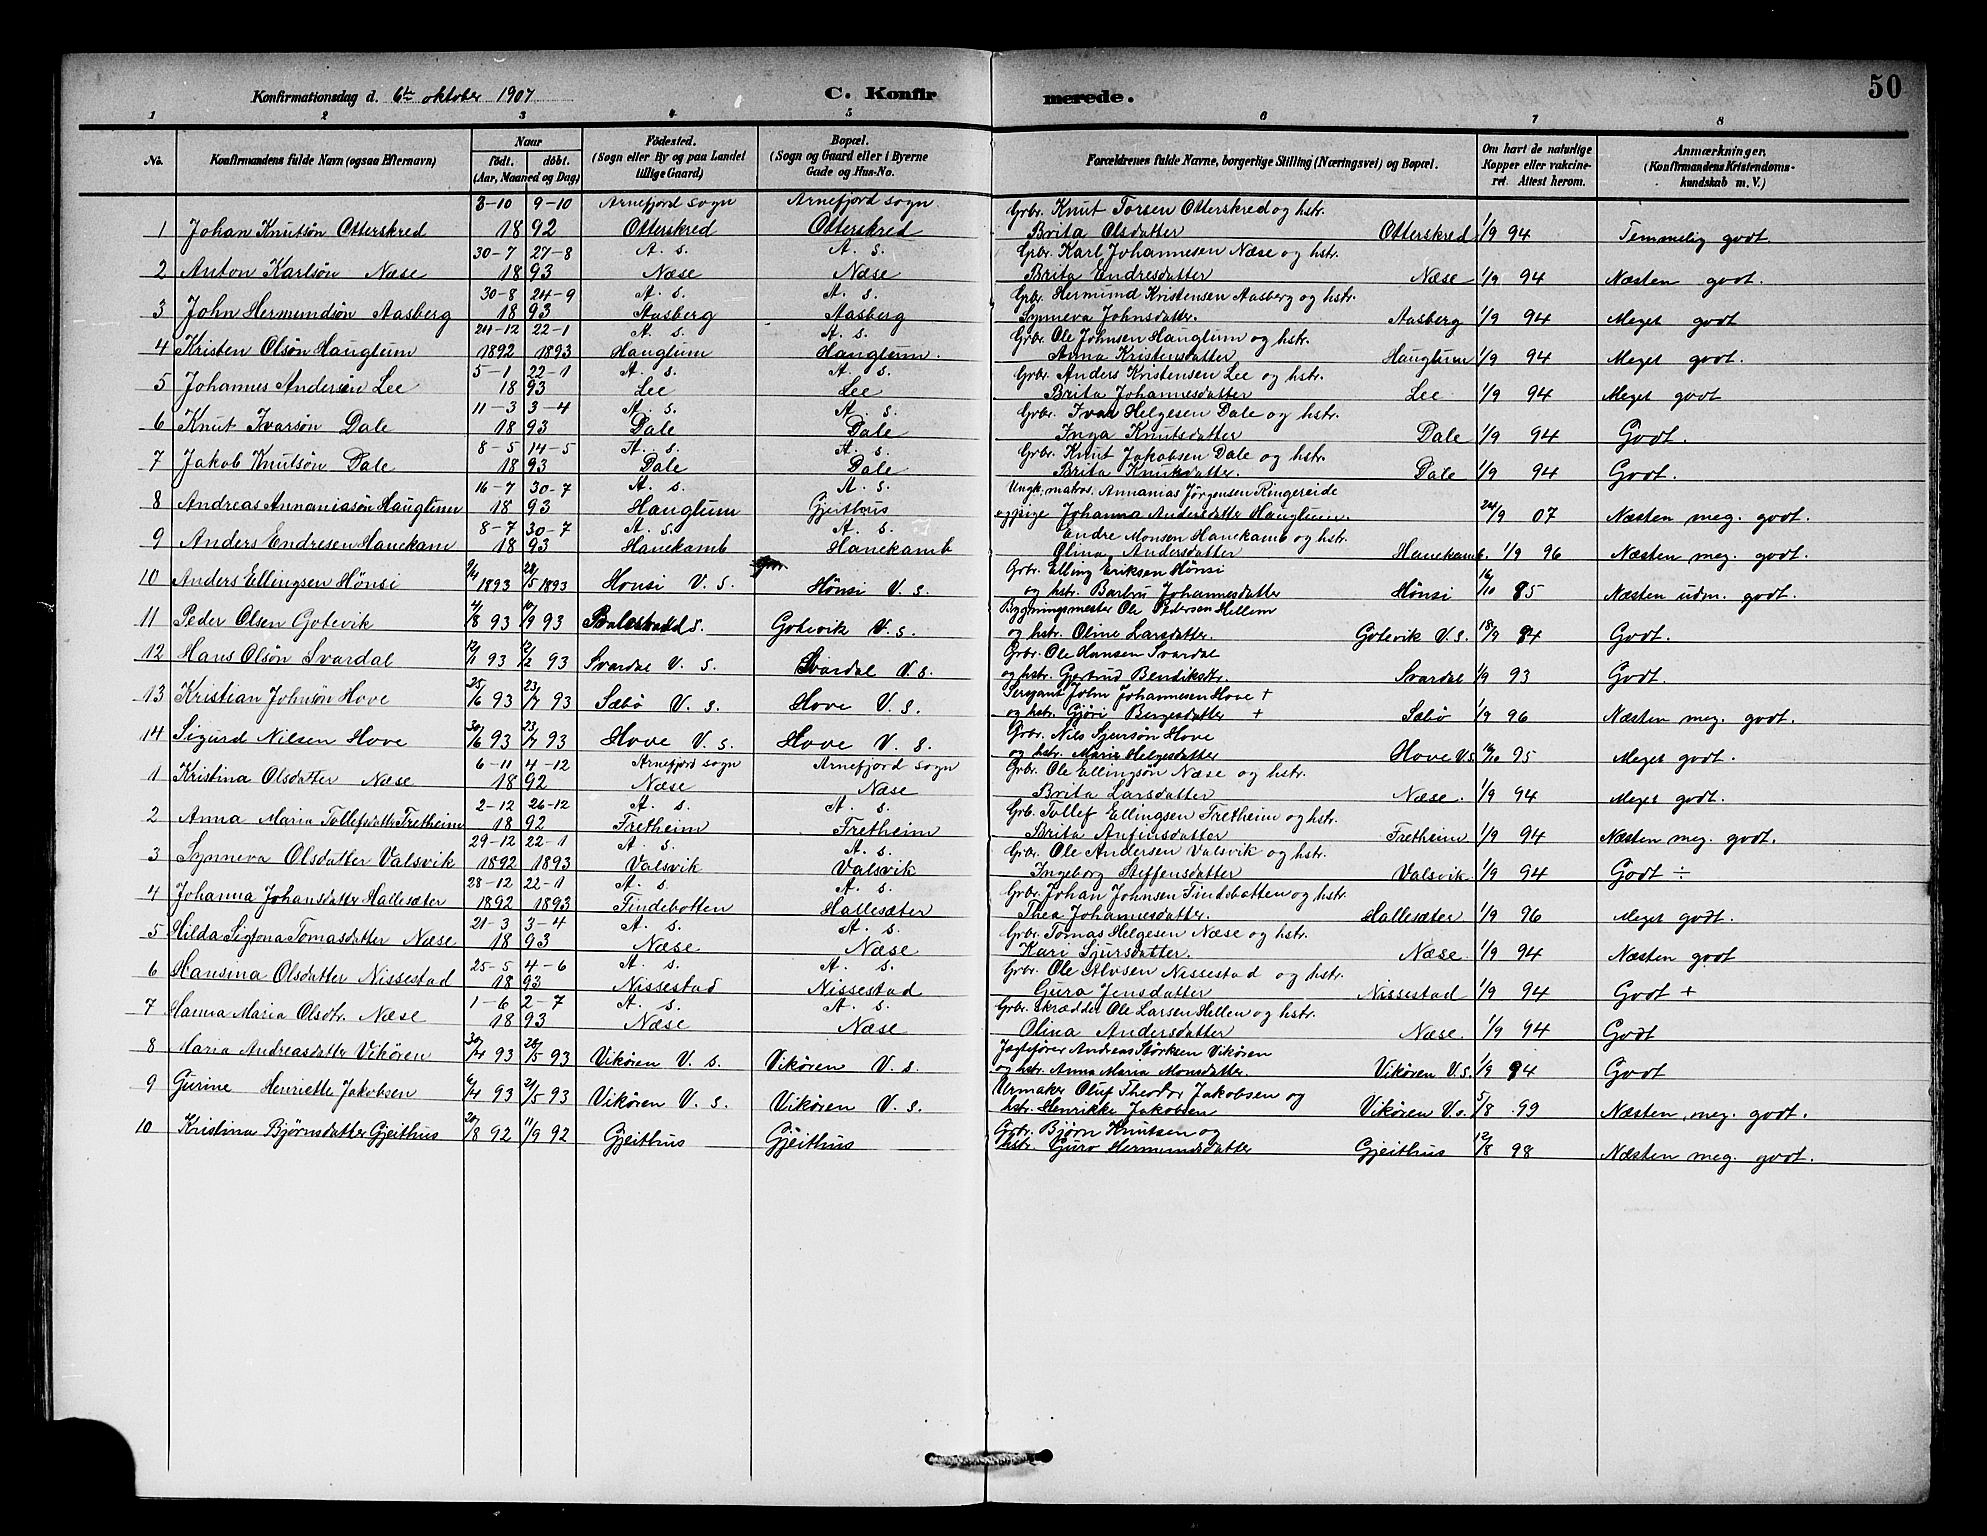 50
Konfirmationsdag d. 6te oktober 1907
C. Konfirmerede.
1 2 3 4 5 6 7 8
No. Konfirmandens fulde Navn (ogsaa Efternavn) Naar født. døbt. (Aar, Maaned og Dag) Fødested. (Sogn eller By og paa Landet tillige Gaard) Bopæl. (Sogn og Gaard eller i Byerne Gade og Hus-No. Forældrenes fulde Navne, borgerlige Stilling (Næringsvei) og Bopæl. Om havt de naturlige Kopper eller vakcineret. Attest herom. Anmærkninger. (Konfirmandens Kristendomskundskab m. V.)
3-10 9-10 Arnefjord sogn Arnefjord sogn. Grbr. Knut Torsen Otterskred og hstr.
1 Johan Knutsøn Otterskred 18 92 Otterskred Otterskred Brita Olsdatter Otterskred 1/9 94 Temmelig godt.
30-7 27-8 A. s. A. s. Grbr. Karl Johannesen Næse og hstr.
2 Anton Karlsøn Næse 18 93 Næse Næse Brita Endresdatter Næse 1/9 94 Næsten godt.
30-8 24-9 A. s. A. s. Grbr. Hermund Kristensen Aasberg og hstr.
3 John Hermundsøn Aasberg 18 93 Aasberg Aasberg Synneva Johnsdatter. Aasberg 1/9 94 Meget godt
24-12 22-1 A. s. A. s. Grbr. Ole Johnsen Hauglum og hstr.
4 Kristen Olsøn Hauglum 1892 1893 Hauglum Hauglum. Anna Kristensdatter Hauglum 1/9 94 Meget godt.
5-1 22-1 A. s. A. s. Grbr. Anders Kristensen Lee og hstr.
5 Johannes Andersøn Lee 18 93 Lee Lee Brita Johannesdatter Lee 1/9 94 Meget godt
11-3 3-4 A. s. A. s. Grbr. Ivar Helgesen Dale og hstr.
6 Knut Ivarsøn Dale 18 93 Dale Dale Inga Knutsdatter Dale 1/9 94 Godt.
8-5 14-5 A. s. A. s. Grbr. Knut Jakobsen Dale og hstr.
7 Jakob Knutsøn Dale 18 93 Dale Dale Brita Knutsdatter. Dale 1/9 94 Godt.
16-7 30-7 A. s. A. s. Ungk. matros. Annanias Jørgensen Ringereide
8 Andreas Annaniassøn Hauglum 18 93 Hauglum Gjeithus og pige Johanna Andersdatter Hauglum. 24/9 07 Næsten meg. godt.
8-7 30-7 A. s. A. s. Endre Monsen Hanekamb og hstr.
9 Anders Endresen Hanekam 18 93 Hanekamb Hanekamb Olina Andersdatter Hanekamb. 1/9 96 Næsten meg. godt.
Grbr. Elling Eriksen Hønsi
10 Anders Ellingsen Hønsi 1893 1893 Hønsi V. s. Hønsi V. s. og hstr. Barbru Johannesdatter Hønsi 16/10 95 Næsten udm. godt.
Bygningsmester Ole Pedersen Hellem
11 Peder Olsen Gotevik 4/8 93 10/9 93 Balestrand s. Gotevik V. s. og hstr. Oline Larsdatter. Gotevik V. s. 18/9 94 Godt.
Grbr. Ole Hansen Svardal
12 Hans Olsøn Svardal 12/1 93 12/2 93 Svardal V. s. Svardal V. s. og hstr. Gjertrud Bendiksdtr. Svardal 1/9 93 Godt.
Sergeant John Johannesen Hove +
13 Kristian Johnsøn Hove 25/6 93 23/7 93 Sæbø V. s. Hove V. s. og hstr. Gjøri Bergesdatter + Sæbø 1/9 96 Næsten meg. godt.
Grbr. Nils Sjursøn Hove
14 Sigurd Nilsen Hove 30/6 93 23/7 93 Hove V. s. Hove V. s. og hstr. Marie Helgesdatter Hove V.s. 95 Meget godt.
6-11 4-12 Arnefjord sogn Arnefjord sogn Grbr. Ole Ellingsøn Næse og hstr.
1 Kristina Olsdatter Næse 18 92 Næse Næse Brita Larsdatter Næse. 1/9 94 Meget godt.
2-12 26-12 A. s. A. s. Grb. Tollef Ellingsen Fretheim og hstr.
2 Anna Maria Tollefsdatter Fretheim 18 92 Fretheim Fretheim Brita Anfinsdatter Fretheim 1/9 94 Næsten meg. godt.
29-12 22-1 A. s. A. s. Grbr. Ole Andersen Valsvik og hstr.
3 Synneva Olsdatter Valsvik 1892 1893 Valsvik Valsvik Ingeborg Steffensdatter Valsvik. 1/9 94 Godt ÷
28-12 22-1 A. s. A. s. Grbr. Johan Johnsen Tindebotten og hstr.
4 Johanna Johansdatter Hallesæter 1892 1893 Tindebotten Hallesæter Thea Johannesdatter. Hallesæter 1/9 96 Meget godt.
21-3 3-4 A. s. A. s. Grbr. Tomas Helgesen Næse og hstr.
5 Hilda Sigfona Tomasdatter Næse 18 93 Næse Næse Kari Sjursdatter. Næse. 1/9 94 Næsten godt
25-5 4-6 A. s. A. s. Grbr. Ole Alvsen Nissestad og hstr.
6 Hansina Olsdatter Nissestad 18 93 Nissestad Nissestad Gura Jensdatter Nissestad 1/9 94 Godt +
1-6 2-7 A. s. A. s. Grbr. skrædder Ole Larsen Hellen og hstr.
7 Hanna Maria Olsdtr. Næse 18 93 Næse Næse Olina Andersdatter Næse 1/9 94 Godt
Jagtefører Andreas Størksen Vikøren
8 Maria Andreasdatter Vikøren 30/4 93 28/5 93 Vikøren V. s. Vikøren V. s. og hstr. Anna Maria Monsdatter. Vikøren V. s. 1/9 94 Godt
Urmaker Oluf Theodor Jakobsen og
9 Gurine Henriette Jakobsen 6/4 93 21/5 93 Vikøren V. s. Vikøren V. s. hstr. Henrikke Jakobsen Vikøren V. s. 5/8 99 Næsten meg. godt.
Grbr. Bjørn Knutsen og
10 Kristina Bjørnsdatter Gjeithus 20/8 92 11/9 92 Gjeithus Gjeithus hstr. Guro Hermundsdatter Gjeithus 12/8 98 Næsten meg. godt.